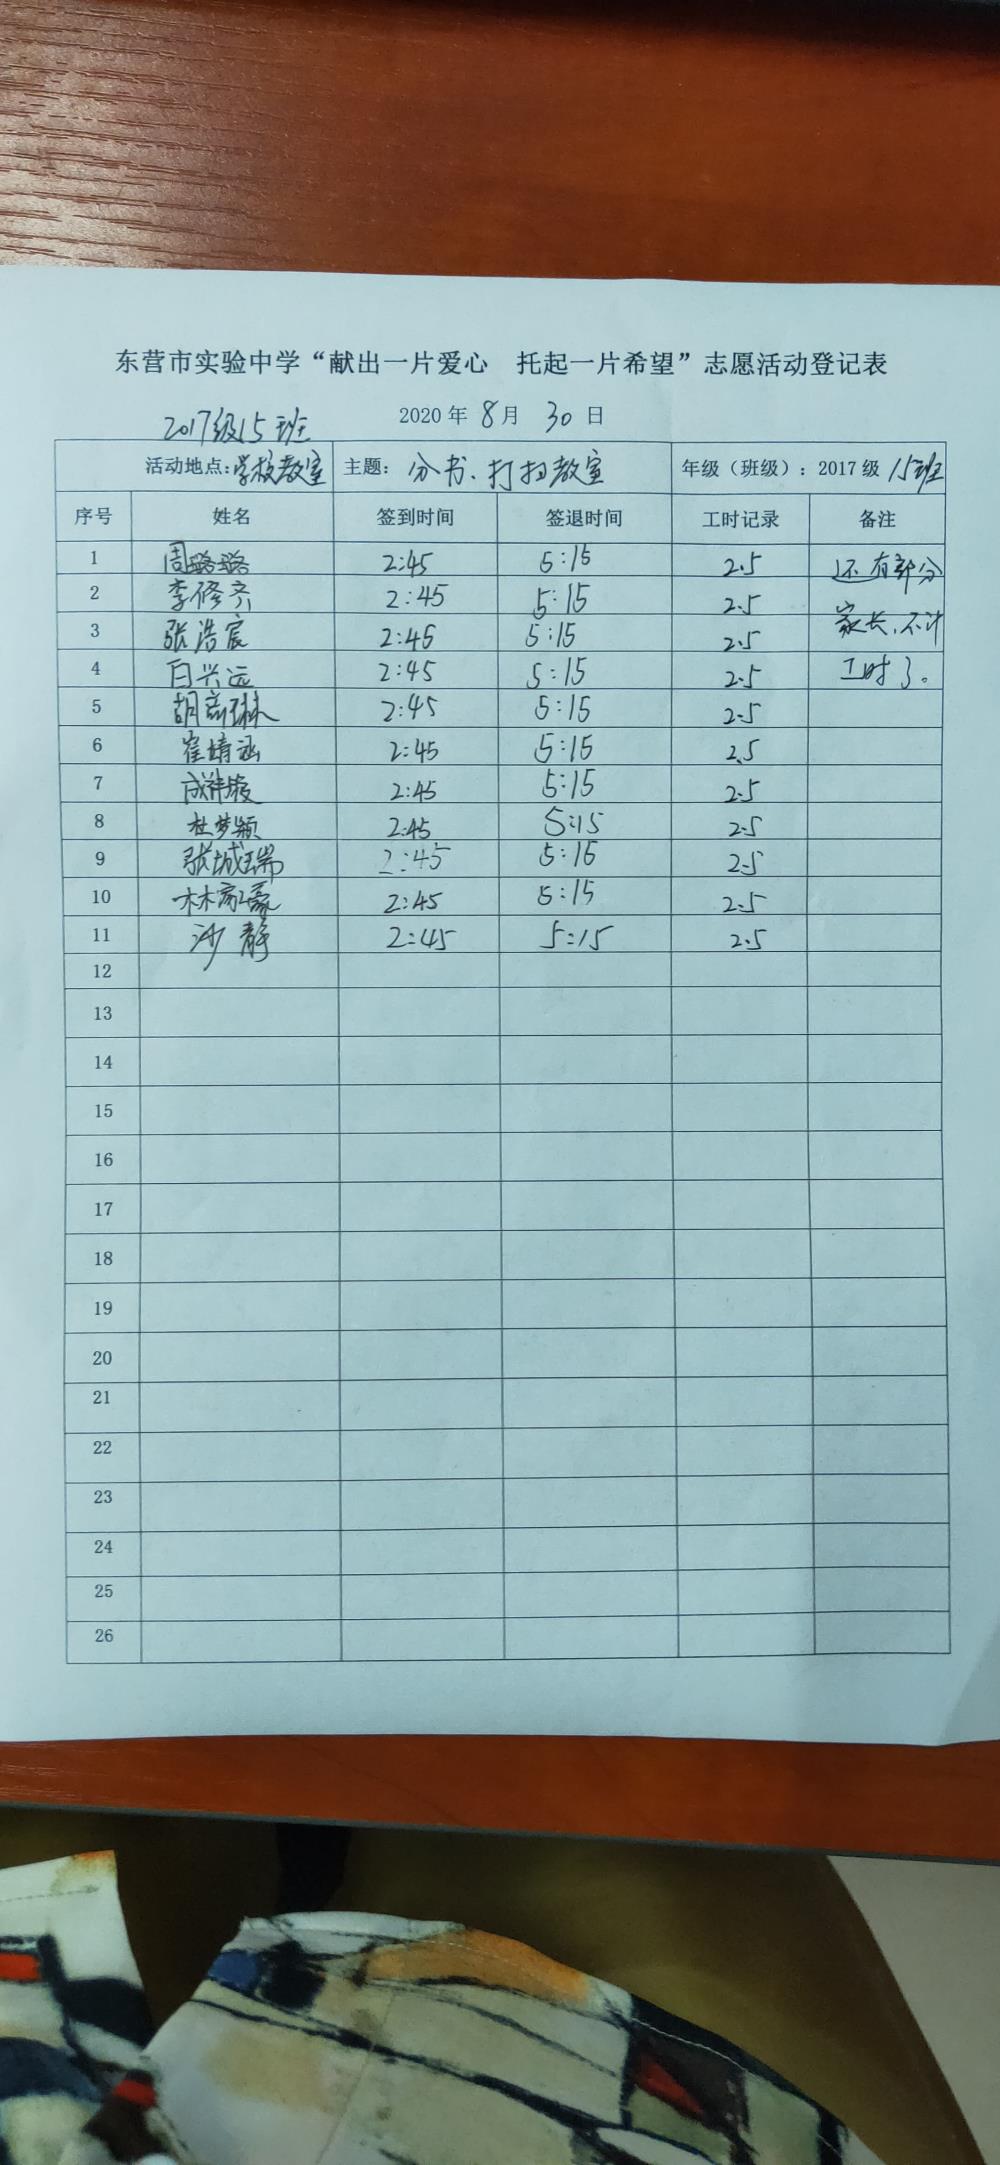 东营市实验中学“献出一片爱心 托起一片希望”志愿活动登记表
2017级15班 2020年8月30日
活动地点:学校教室 主题:分书、打扫教室 年级(班级):2017级15班
序号 姓名 签到时间 签退时间 工时记录 备注
1 周璐璐 2:45 5:15 2.5 还有部分
2 李修齐 2:45 5:15 2.5 家长,不计
3 张浩宸 2:45 5:15 2.5
4 白兴远 2:45 5:15 2.5 工时了。
5 2:45 5:15 2.5
6 崔靖涵 2:45 5:15 2.5
7 2:45 5:15 2.5
8 杜梦颖 2:45 5:15 2.5
9 张城瑞 2:45 5:15 2.5
10 林家豪 2:45 5:15 2.5
11 沙静 2:45 5:15 2.5
12
13
14
15
16
17
18
19
20
21
22
23
24
25
26